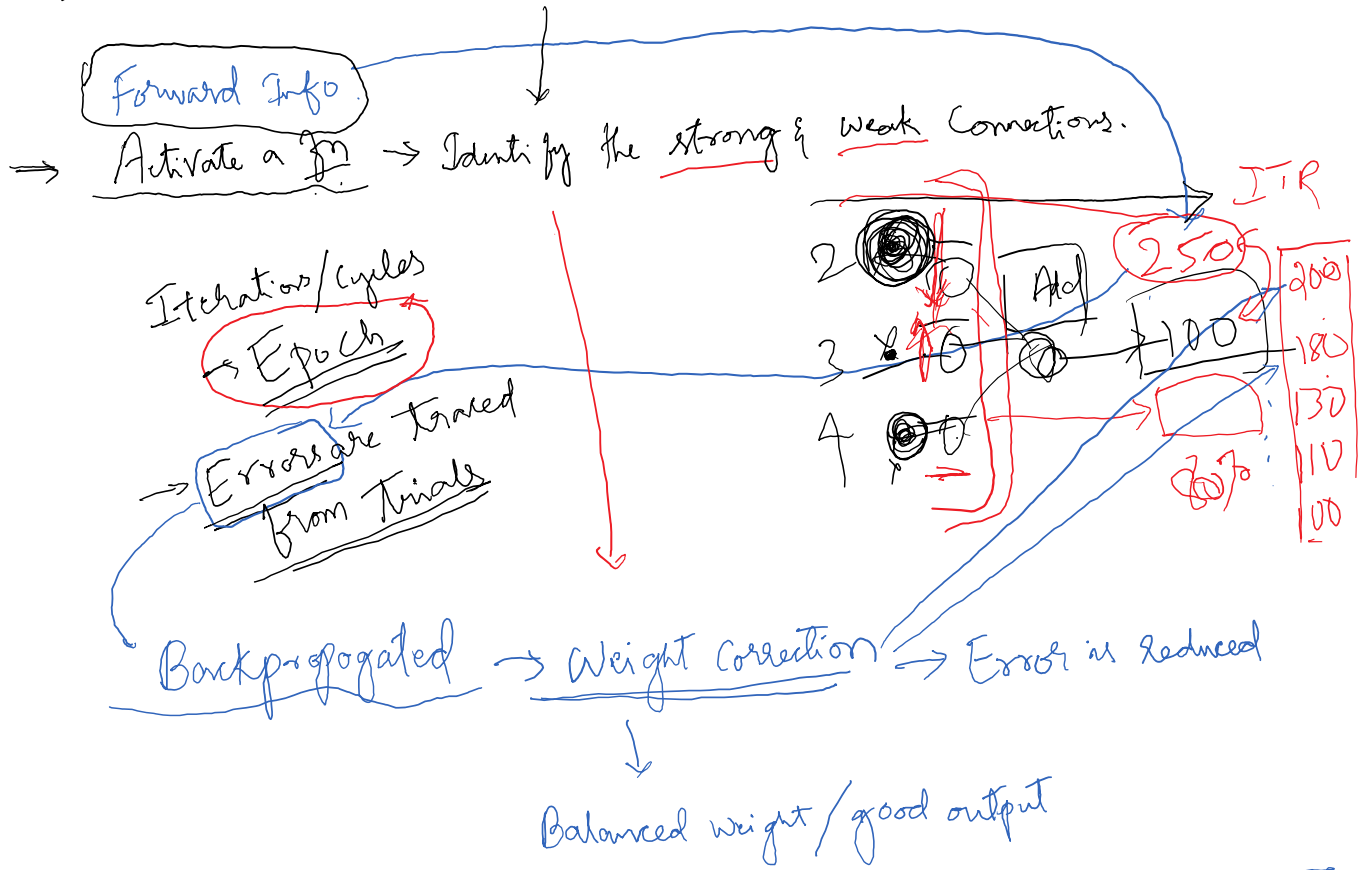 Forward Info
→ Activate a fn → Identify the strong & weak Connections.
ITR
Iterations/cycles
→ Epoch
→ Errors are traced
from trials
2
3
4
Add
250
100
200
180
130
110
100
Backpropogated → Weight Correction → Error is reduced
Balanced weight/good output